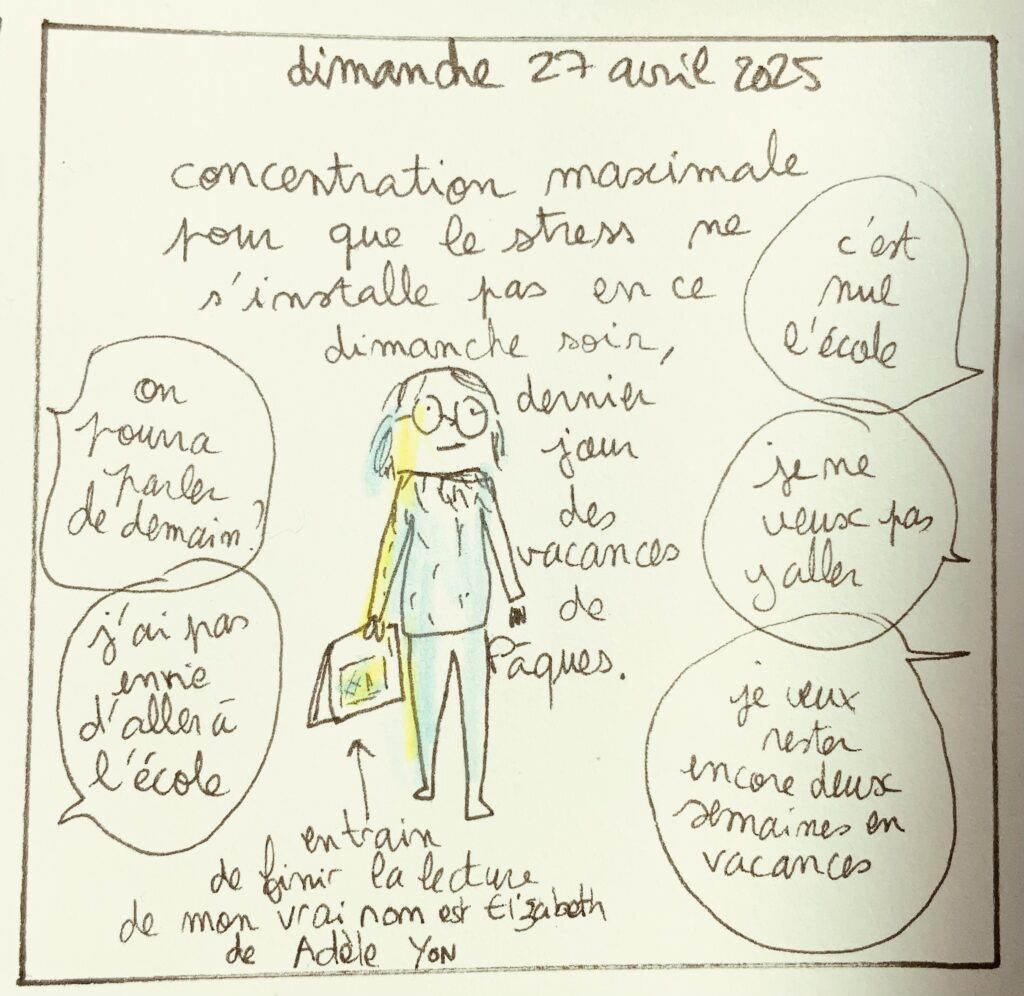 dimanche 27 avril 2025
concentration maximale
pour que le stress ne
s'installe pas en ce
dimanche soir,
dernier
jour
des
vacances
de
Pâques.
on
pourra
parler
de demain?
j'ai pas
envie
d'aller à
l'école
c'est
nul
l'école
je ne
veux pas
y aller
je veux
rester
encore deux
semaines en
vacances
en train
de finir la lecture
de mon vrai nom est Elizabeth
de Adèle YON